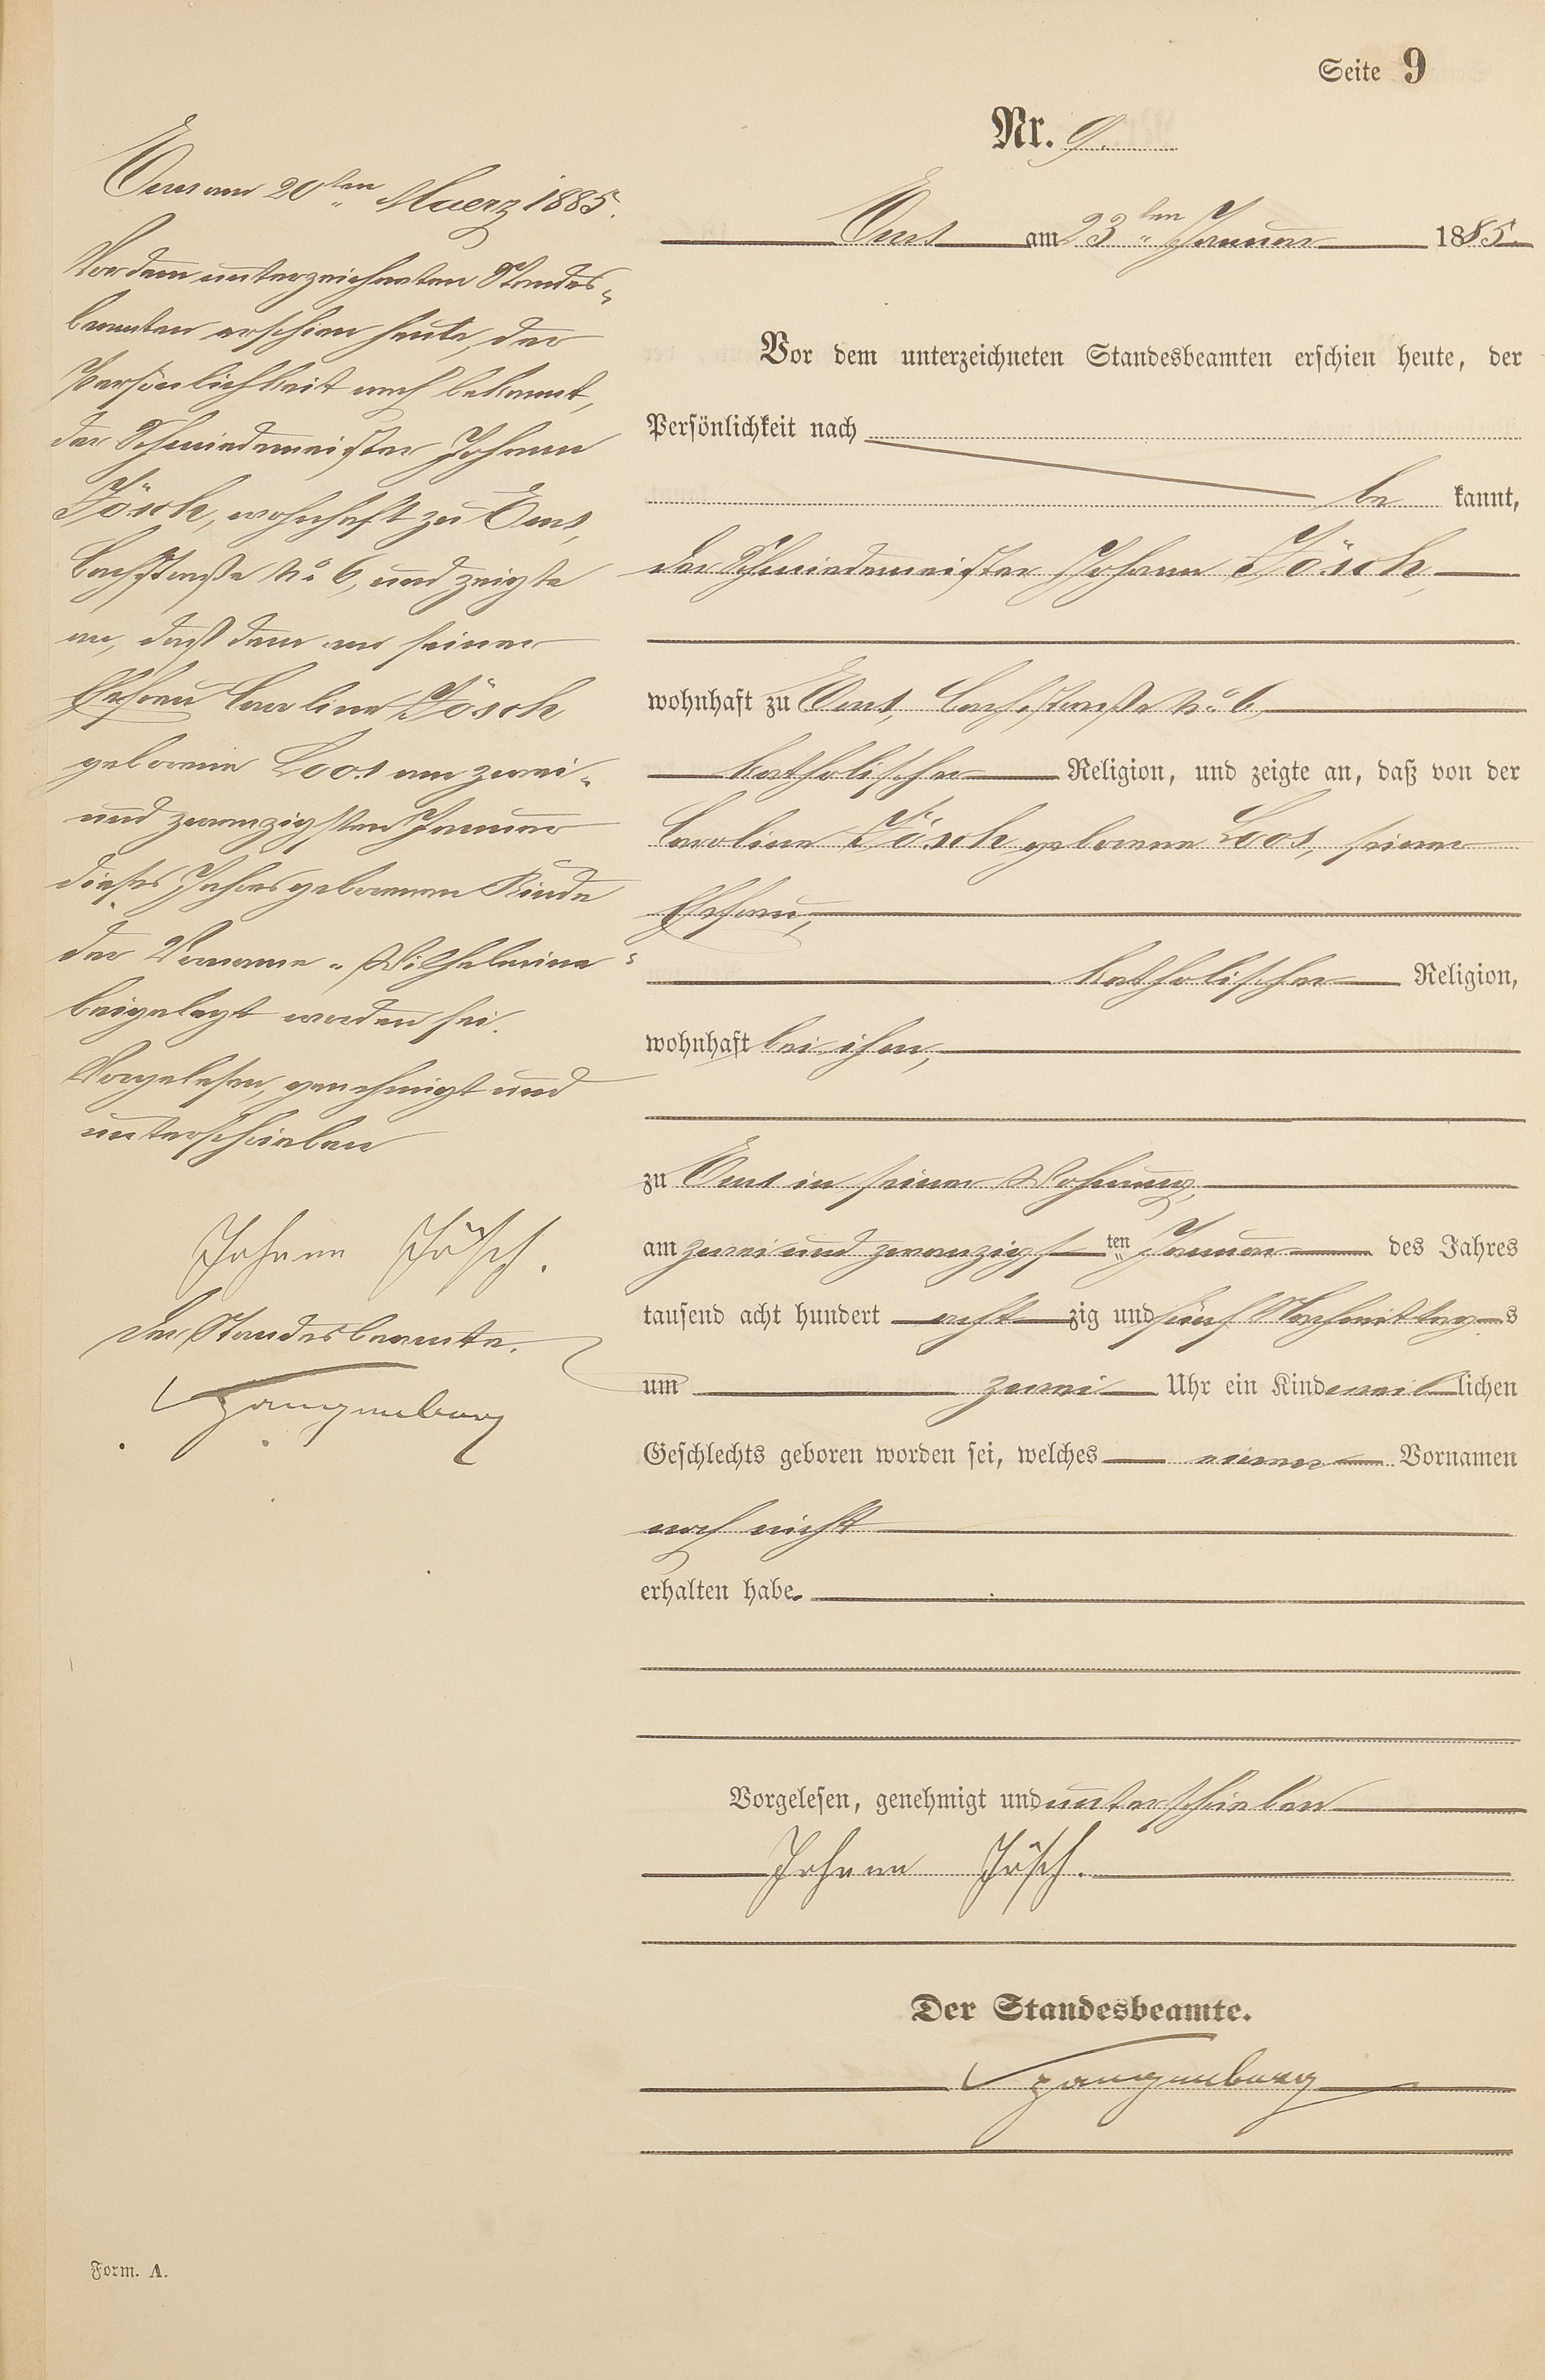 Seite 9
Nr. 9.
Ems am 23ten Januar 1885.
Vor dem unterzeichneten Standesbeamten erschien heute, der
Persönlichkeit nach
be kannt,
der Schmiedemeister Johann Jösch,
wohnhaft zu Ems, Bachstraße No 6
katholischer Religion, und zeigte an, daß von der
Caroline Jösch geborene Loos, seiner
Ehefrau,
katholischer Religion,
wohnhaft bei ihm,
zu Ems in seiner Wohnung,
am zwei und zwanzigsten Januar des Jahres
tausend acht hundert acht zig und fünf Nachmittags
um zwei Uhr ein Kind weiblichen
Geschlechts geboren worden sei, welches einen Vornamen
noch nicht
erhalten habe.
Vorgelesen, genehmigt und unterschrieben
Johann Jösch.
Der Standesbeamte.
Ems am 20ten Maerz 1885.
Vor dem unterzeichneten Standes-
beamten erschien heute, der
Persönlichkeit nach bekannt,
der Schmiedemeister Johann
Jösch, wohnhaft zu Ems,
Bachstraße No 6, und zeigte
an, daß dem von seiner
Ehefrau Caroline Jösch
geborene Loos am zwei-
und zwanzigsten Januar
dieses Jahres geborenen Kinde
der Vorname "Wilhelmine"
beigelegt worden sei.
Vorgelesen, genehmigt und
unterschrieben
Johann Jösch.
Der Standesbeamte.
Form. A.